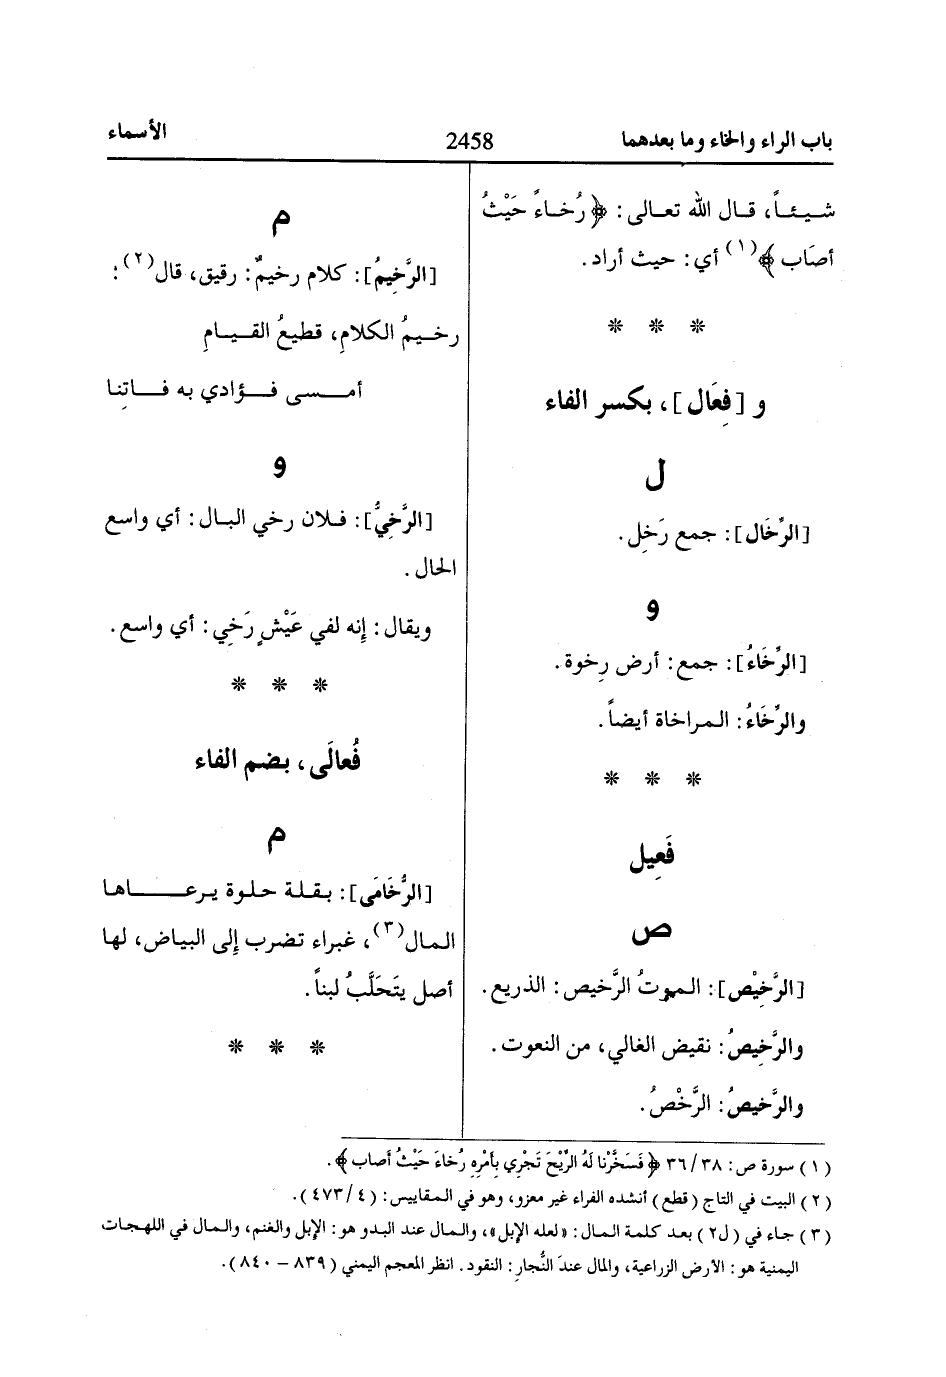 باب الراء والخاء وما بعدهما
2458
الأسماء
شيئاً، قال الله تعالى: ﴿رُخاءً حَيْثُ
أصَاب﴾(١) أي: حيث أراد.
* * *
و [فِعَال]، بكسر الفاء
ل
[الرِّخَال]: جمع رَخِل.
و
[الرِّخَاءُ]: جمع: أرض رِخوة.
والرِّخَاءُ: المراخاة أيضاً.
* * *
فَعِيل
ص
[الرَّخيْص]: الموتُ الرَّخيص: الذريع.
والرَّخيصُ: نقيض الغالي، من النعوت.
والرَّخيصُ: الرَّخْصُ.
م
[الرَّخِيمُ]: كلام رخيمٌ: رقيق، قال(٢):
رخيمُ الكلامِ، قطيعُ القيامِ
أمسى فؤادي به فاتِنا
و
[الرَّخِيُّ]: فلان رخي البال: أي واسع
الحال.
ويقال: إنه لفي عَيْشٍ رَخِي: أي واسع.
* * *
فُعالَى، بضم الفاء
م
[الرُّخَامَى]: بقلة حلوة يرعاها
المال(٣)، غبراء تضرب إلى البياض، لها
أصل يتَحَلَّبُ لبناً.
* * *
(١) سورة ص: ٣٨/ ٣٦ ﴿فَسَخَّرْنا لَهُ الرِّيْحَ تَجْرِي بِأَمْرِهِ رُخاءَ حَيْثُ أصاب﴾.
(٢) البيت في التاج (قطع) أنشده الفراء غير معزو، وهو في المقاييس: (٤/ ٤٧٣).
(٣) جاء في (ل٢) بعد كلمة المال: «لعله الإبل»، والمال عند البدو هو: الإبل والغنم، والمال في اللهجات
اليمنية هو: الأرض الزراعية، والمال عندَ النُّجارِ: النقود. انظر المعجم اليمني (٨٣٩ – ٨٤٠).